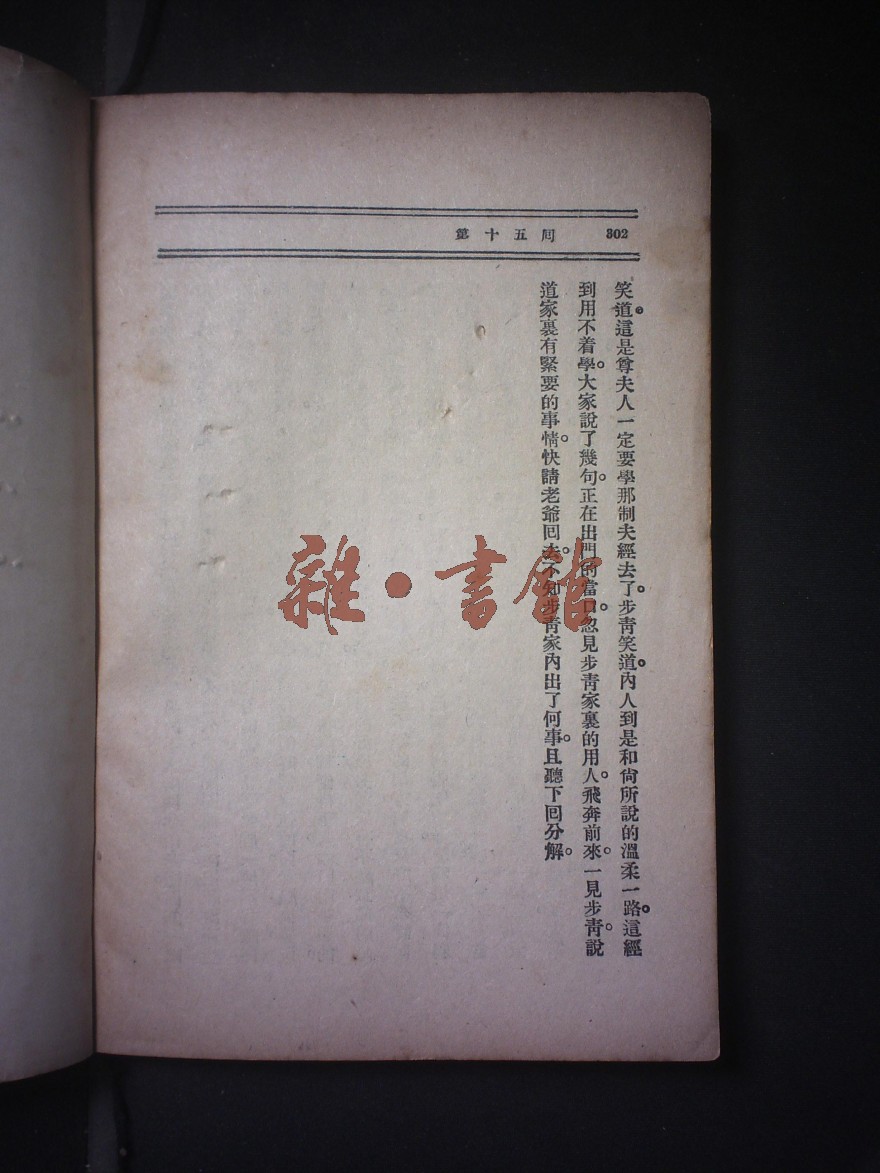 第十五回 302
笑道。這是尊夫人一定要學那制夫經去了。步靑笑道。內人到是和尙所說的溫柔一路。這經
到用不着學。大家說了幾句。正在出門的當口。忽見步靑家裏的用人。飛奔前來。一見步靑。說
道家裏有緊要的事情。快請老爺回去。不知步靑家內出了何事。且聽下回分解。
雜·書館